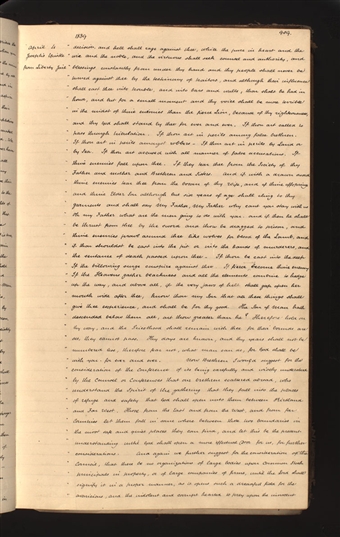 1839
April
Joseph's Epistle
from Liberty Jail
derision, and hell shall rage against thee, while the pure in heart and the
wise and the noble, and the virtuous shall seek counsel and authority, and
blessings constantly from under thy hand and thy people shall never be
turned against thee by the testimony of traitors, and although their influence
shall cast thee into trouble, and into bars and walls, thou shalt be had in
honor, and but for a small moment and thy voice shall be more terrible
in the midst of thine enemies than the fierce Lion, because of thy righteousness,
and thy God shall stand by thee for ever and ever. If thou art called to
pass through tribulation. If thou art in perils among false brethren.
If thou art in perils amongst robbers. If thou art in perils by land or
by sea. If thou art accused with all manner of false accusations. If
thine enemies fall upon thee. If they tear thee from the society of thy
Father and mother and Brethren and Sisters. And if with a drawn sword
thine enemies tear thee from the bosom of thy wife, and of thine offspring
and thine Elder Son although but six years of age shall cling to thy
garments and shall say My Father, My Father why cant you stay with us
Oh my Father what are the men going to do with you. and if then he shall
be thrust from thee by the sword and thou be dragged to prison, and
thine enemies prowl around thee like wolves for blood of the Lamb, and
if thou shouldest be cast into the pit or into the hands of murderers, and
the sentence of death passed upon thee. If thou be cast into the deep
If the billowing surge conspire against thee. If fierce winds become thine enemy
If the Heavens gather blackness and all the elements combine to hedge
up the way, and above all, if the very jaws of hell shall gape open her
mouth wide after thee, know thou my Son that all these things shall
give thee experience, and shall be for thy good. The Son of man hath
descended below them all, art thou greater than he? Therefore hold on
thy way, and the Priesthood shall remain with thee, for their bounds are
set, they cannot pass. Thy days are known, and thy years shall not be
numbered less, therefore fear not, what man can do, for God shall be
with you for ever and ever. Now Brethren I would suggest for the
consideration of the Conference of its being carefully and wisely understood
by the Council or Conferences that our brethren scattered abroad, who
understand the Spirit of the gathering that they fall into the places
of refuge and safety that God shall open unto them between Kirtland
and Far West. Those from the East and from the West, and from far
Countries let them fall in some where between those two boundaries in
the most safe and quiet places they can find, and let this be the present
understanding until God shall open a more effectual door for us for further
considerations. And again we further suggest for the consideration of the
Council, that there be no organizations of large bodies upon Common Stock
principals in property, or of large companies of firms, until the Lord shall
signify it in a proper manner, as it opens such a dreadful field for the
avaricious, and the indolent and corrupt hearted to prey upon the innocent